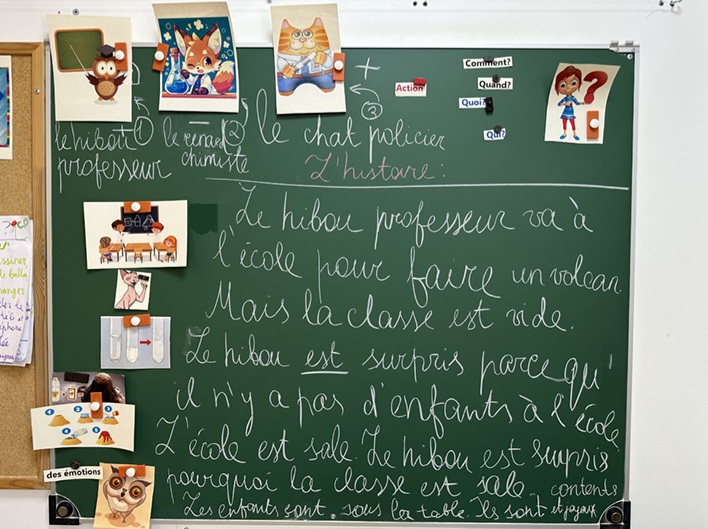 Comment?
Action
Quand?
Quoi?
Qui?
le hibou ① le renard ② le chat policier
professeur chimiste ③
L'histoire:
Le hibou professeur va à
l'école pour faire un volcan.
Mais la classe est vide.
Le hibou est surpris parce qu'
il n'y a pas d'enfants à l'école
L'école est sale. Le hibou est surpris
pourquoi la classe est sale. contents
Les enfants sont sous la table. Ils sont et joyeux
des émotions